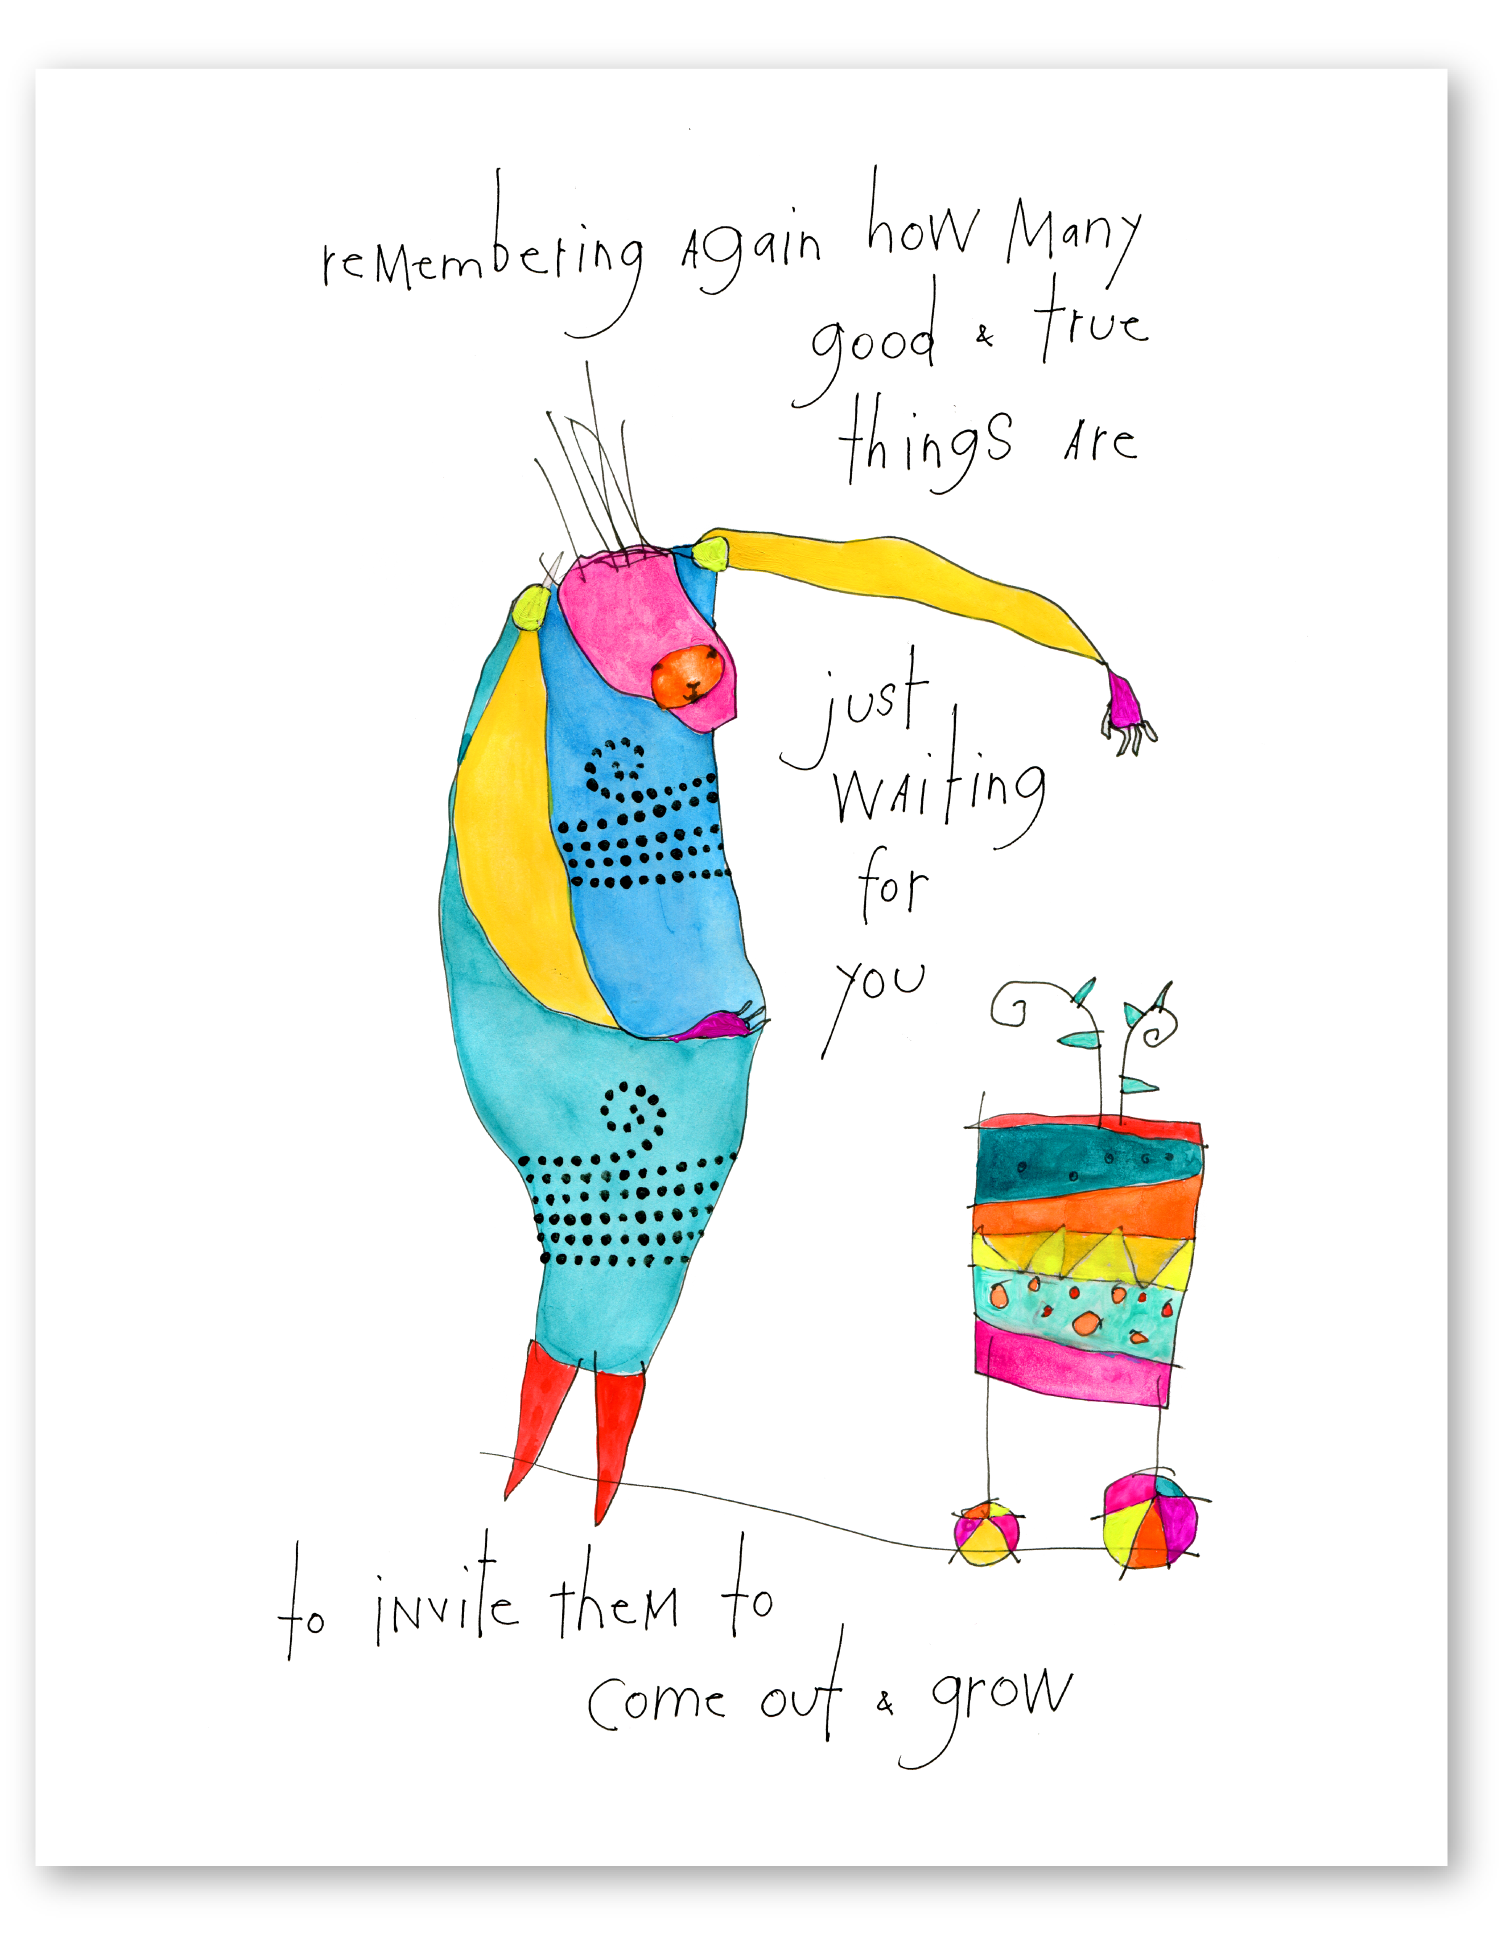 reMembering Again how Many
good & true
things Are
just
wAiting
for
you
to iNvite theM to
come out & grow